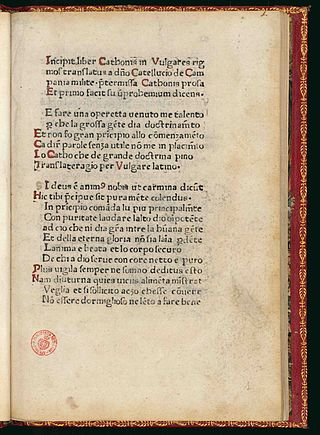 Incipit liber Cathonis in Vulgares rig
mos translatus a dño Catellucio de Cam
pania milite. p̄termissa Cathonis prosa
Et primo facit su ꝓhemium dicens.
E fare una operetta uenuto me talento
ꝑ che la grossa gēte dia doctrinamēto
Et ron fo gran prīcipio allo comenzamēto
Ca dir parole senza utile nō me in placimēto
Lo Catho che de grande doctrina pino
Translateragio per Vulgare latino.
SI deus ē animꝰ nobis ut carmina dicūt
Hic tibi p̄cipue sit pura mēte colendus.
In prīcipio comāda lu piu principalmente
Con puritate laudare lalto dio oīpotēte
ad cio che ni dia gra mtre la buana gēte
Et della eterna gloria nō sia laīa ꝑdēte
Lamma e brata et lo corpo securo
De chi a dio serue con core netto e puro
Plus uigila semper ne somno deditus esto
Nam diuturna quies uiciis alimēta mīstrat
Veglia et si sollicito aczo chesse cōuene
Nō essere dormiglioso ne lēto a fare bene